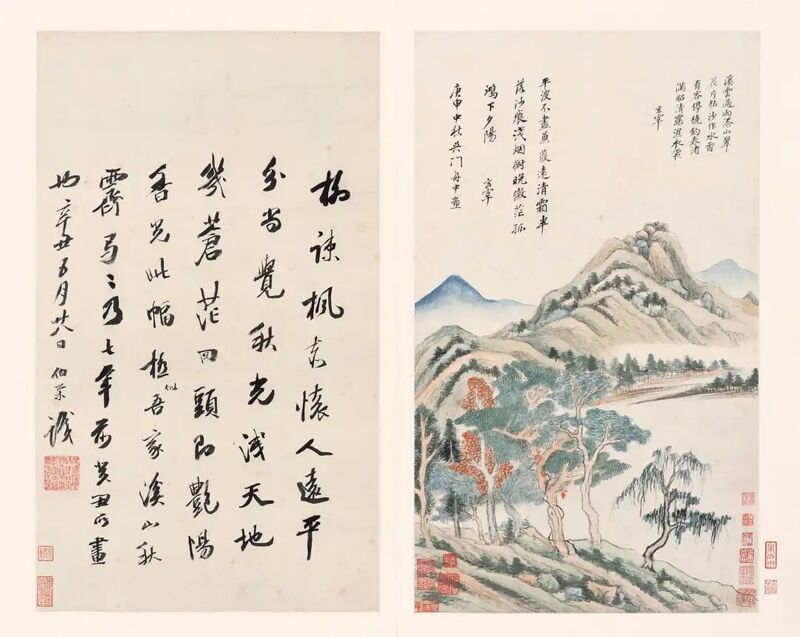 溪雲過雨添山翠
花片粘沙作水香
有客停橈釣春渚
滿船清露濕衣裳
玄宰
平波不盡蒹葭遠清霜半
落沙痕淺烟樹晚微茫孤
鴻下夕陽 玄宰
庚申中秋吳門舟中畫
柳疎楓老懷人遠平
分尚覺秋光淺天地
幾蒼茫回頭即艷陽
香光此幅極似吾家溪山秋
霽乃七年前癸丑所畫
也辛丑五月廿八日伯識